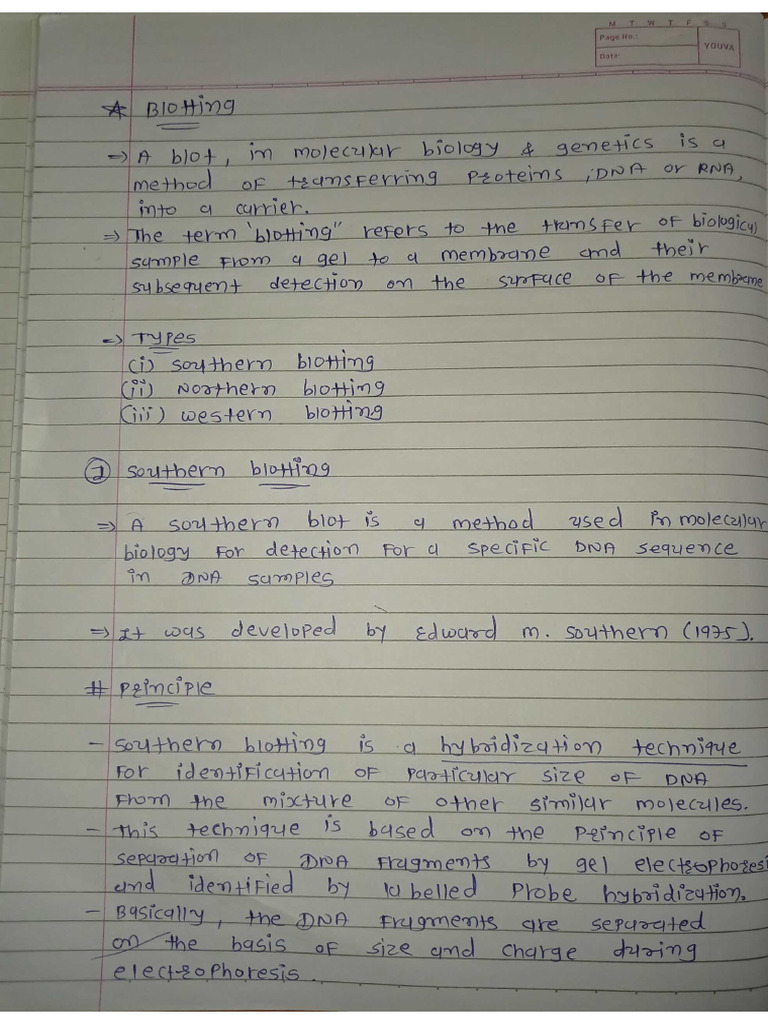 M T W T F S S
Page No.:
YOUVA
Date:
☆ Blotting
⇒ A blot, in molecular biology & genetics is a
method of transferring proteins, DNA or RNA,
into a carrier.
⇒ The term "blotting" refers to the transfer of biological
sample from a gel to a membrane and their
subsequent detection on the surface of the membrane
⇒ Types
(i) southern blotting
(ii) Northern blotting
(iii) western blotting
① southern blotting
⇒ A southern blot is a method used in molecular
biology for detection for a specific DNA sequence
in DNA samples
⇒ It was developed by Edward m. southern (1975).
# Principle
- southern blotting is a hybridization technique
for identification of particular size of DNA
from the mixture of other similar molecules.
- This technique is based on the principle of
separation of DNA fragments by gel electrophoresi
and identified by labelled probe hybridization.
- Basically, the DNA fragments are separated
on the basis of size and charge during
electrophoresis.